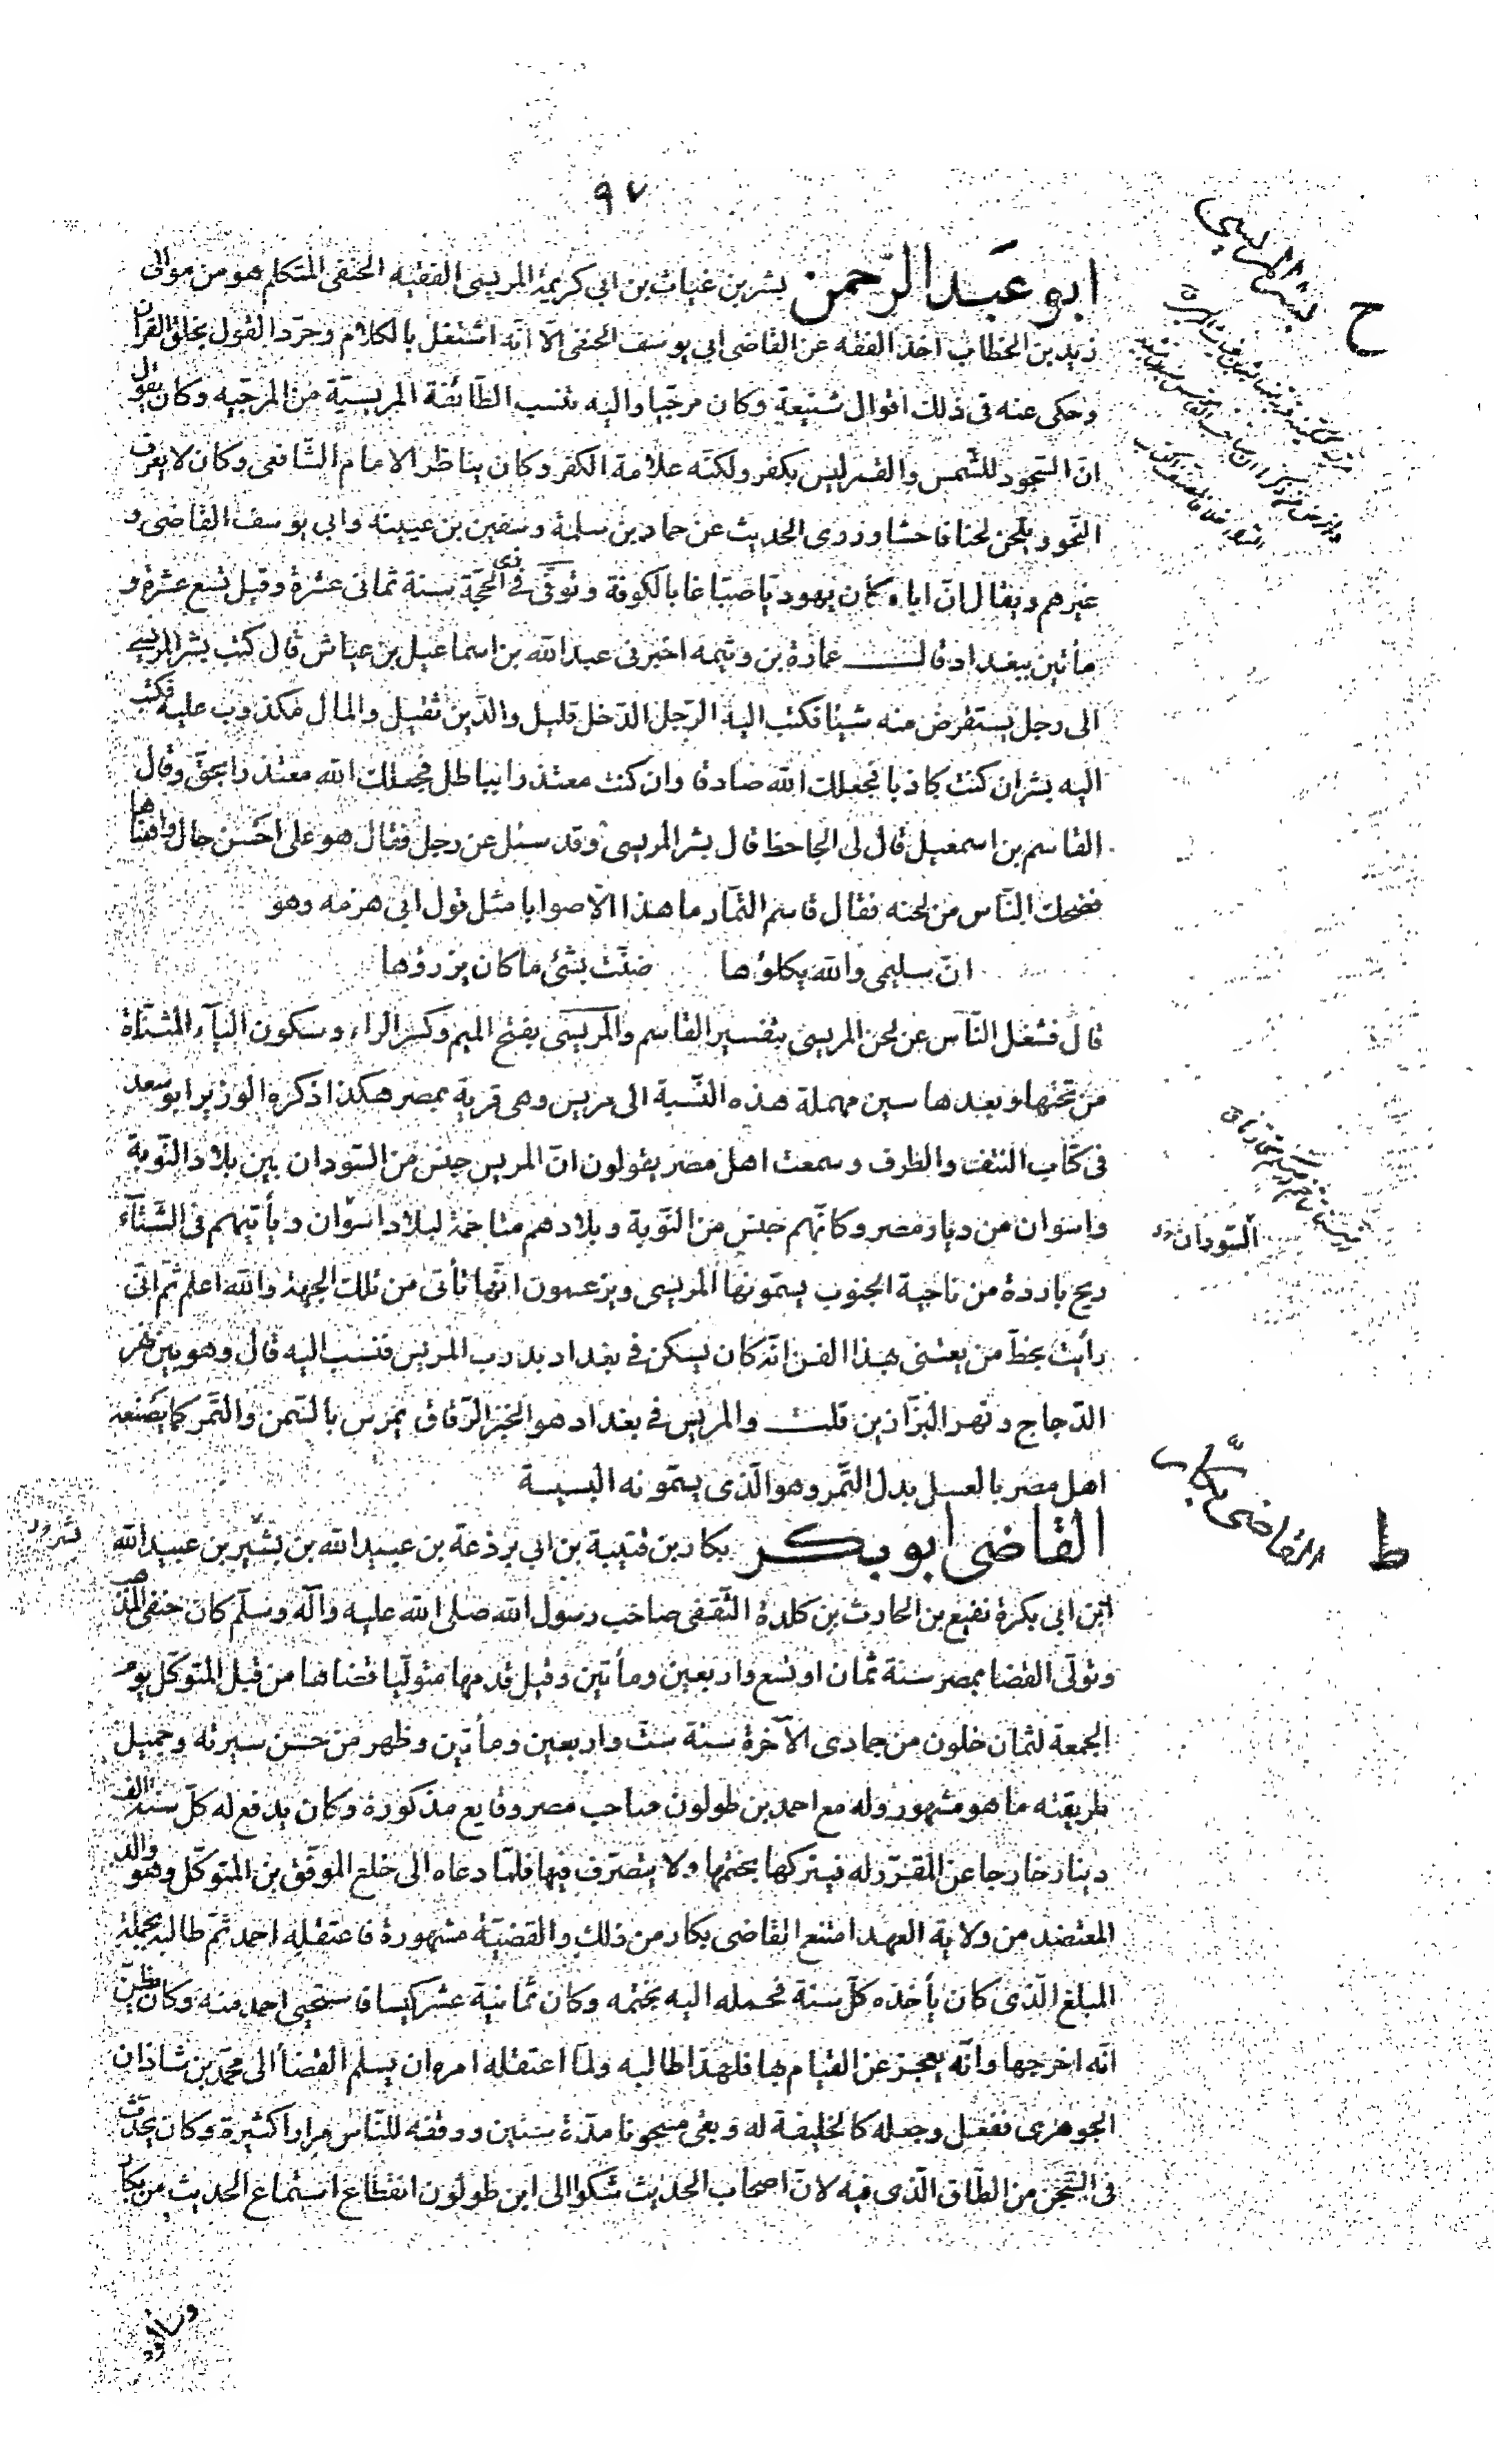 ٩٧
ابو عبد الرّحمن بشر بن غياث بن ابى كريمة المريسى الفقيه الحنفى المتكلم هو من موالى
زيد بن الخطاب اخذ الفقه عن القاضى ابى يوسف الحنفى الّا انّه اشتغل بالكلام وجرّد القول بخلق القران
وحكى عنه فى ذلك اقوال شنيعة وكان مرجئيا واليه تنسب الطّائفة المريسيّة من المرجئيه وكان يقول
انّ السّجود للشّمس والقمر ليس بكفر ولكنّه علامة الكفر وكان يناظر الامام الشّافعى وكان لا يعرف
النّحو ويلحن لحنا فاحشا وروى الحديث عن حماد بن سلمة وسفين بن عيينه وابى يوسف القاضى و
غيرهم ويقال انّ اباه كان يهوديّا صبّاغا بالكوفة وتوفّى فى ذى الحجّة سنة ثمانى عشرة وقيل تسع عشرة و
مأتين ببغداد قال عمارة بن وثيمه اخبرنى عبد الله بن اسماعيل بن عياش قال كتب بشر المريسى
الى رجل يستقرض منه شيئا فكتب اليه الرّجل الدّخل قليل والدّين ثقيل والمال مكذوب عليه فكتب
اليه بشر ان كنت كاذبا فجعلك الله صادقا وان كنت معتذرا بباطل فجعلك الله معتذرا بحقّ وقال
القاسم بن اسمعيل قال لى الجاحظ قال بشر المريسى وقد سئل عن رجل فقال هو على احسن حال واهنأها
فضحك النّاس من لحنه فقال قاسم التمّار ما هذا الّا صوابا مثل قول ابن هرمه وهو
انّ سليمى والله يكلؤها ضنّت بشئ ما كان يزرؤها
قال فشغل النّاس عن لحن المريسى بتفسير القاسم والمريسى بفتح الميم وكسر الراء وسكون اليآء المثنّاة
من تحتها وبعدها سين مهملة هذه النّسبة الى مريس وهى قرية بمصر هكذا ذكره الوزير ابو سعد
فى كتاب النتف والطرف وسمعت اهل مصر يقولون انّ المريس جنس من السّودان بين بلاد النّوبة
واسوان من ديار مصر وكانّهم جنس من النّوبة وبلادهم متاخمة لبلاد اسوان ويأتيهم فى الشّتآء
ريح باردة من ناحية الجنوب يسمّونها المريسى ويزعمون انّها تأتى من تلك الجهة والله اعلم ثمّ انّى
رأيت بخطّ من يعتنى بهذا الفن انّه كان يسكن فى بغداد بدرب المريس فنسب اليه قال وهو بين نهر
الدّجاج ونهر البزّازين قلت والمريس فى بغداد هو الخبز الرّقاق يمرس بالسّمن والتّمر كما يصنعه
اهل مصر بالعسل بدل التّمر وهو الّذى يسمّونه البسيسة
القاضى ابو بكر بكار بن قتيبة بن ابى برذعة بن عبيد الله بن بشير بن عبيد الله
ابن ابى بكرة نفيع بن الحارث بن كلدة الثّقفى صاحب رسول الله صلى الله عليه وآله وسلّم كان حنفى المذهب
وتولّى القضا بمصر سنة ثمان او تسع واربعين ومأتين وقيل قدمها متولّيا قضاها من قبل المتوكّل يوم
الجمعة لثمان خلون من جمادى الآخرة سنة ستّ واربعين ومأتين وظهر من حسن سيرته وجميل
طريقته ما هو مشهور وله مع احمد بن طولون صاحب مصر وقايع مذكورة وكان يدفع له كلّ سنة الف
دينار خارجا عن المقرّر له فيتركها بختمها ولا يتصرّف فيها فلمّا دعاه الى خلع الموفّق بن المتوكّل وهو والد
المعتضد من ولاية العهد امتنع القاضى بكار من ذلك والقضيّة مشهورة فاعتقله احمد ثمّ طالبه بجملة
المبلغ الّذى كان يأخذه كلّ سنة فحمله اليه بختمه وكان ثمانية عشر كيسا فاستحيى احمد منه وكان يظنّ
انّه اخرجها وانّه يعجز عن القيام بها فلهذا طالبه ولمّا اعتقله امره ان يسلم القضا الى محمّد بن شاذان
الجوهرى ففعل وجعله كالخليفة له وبقى مسجونا مدّة سنين ووقفه للنّاس مرارا كثيرة وكان يحدّث
فى السّجن من الطّاق الّذى فيه لانّ اصحاب الحديث شكوا الى ابن طولون انقطاع استماع الحديث من بكار
ح
السّودان
القاضى بكّار
ط